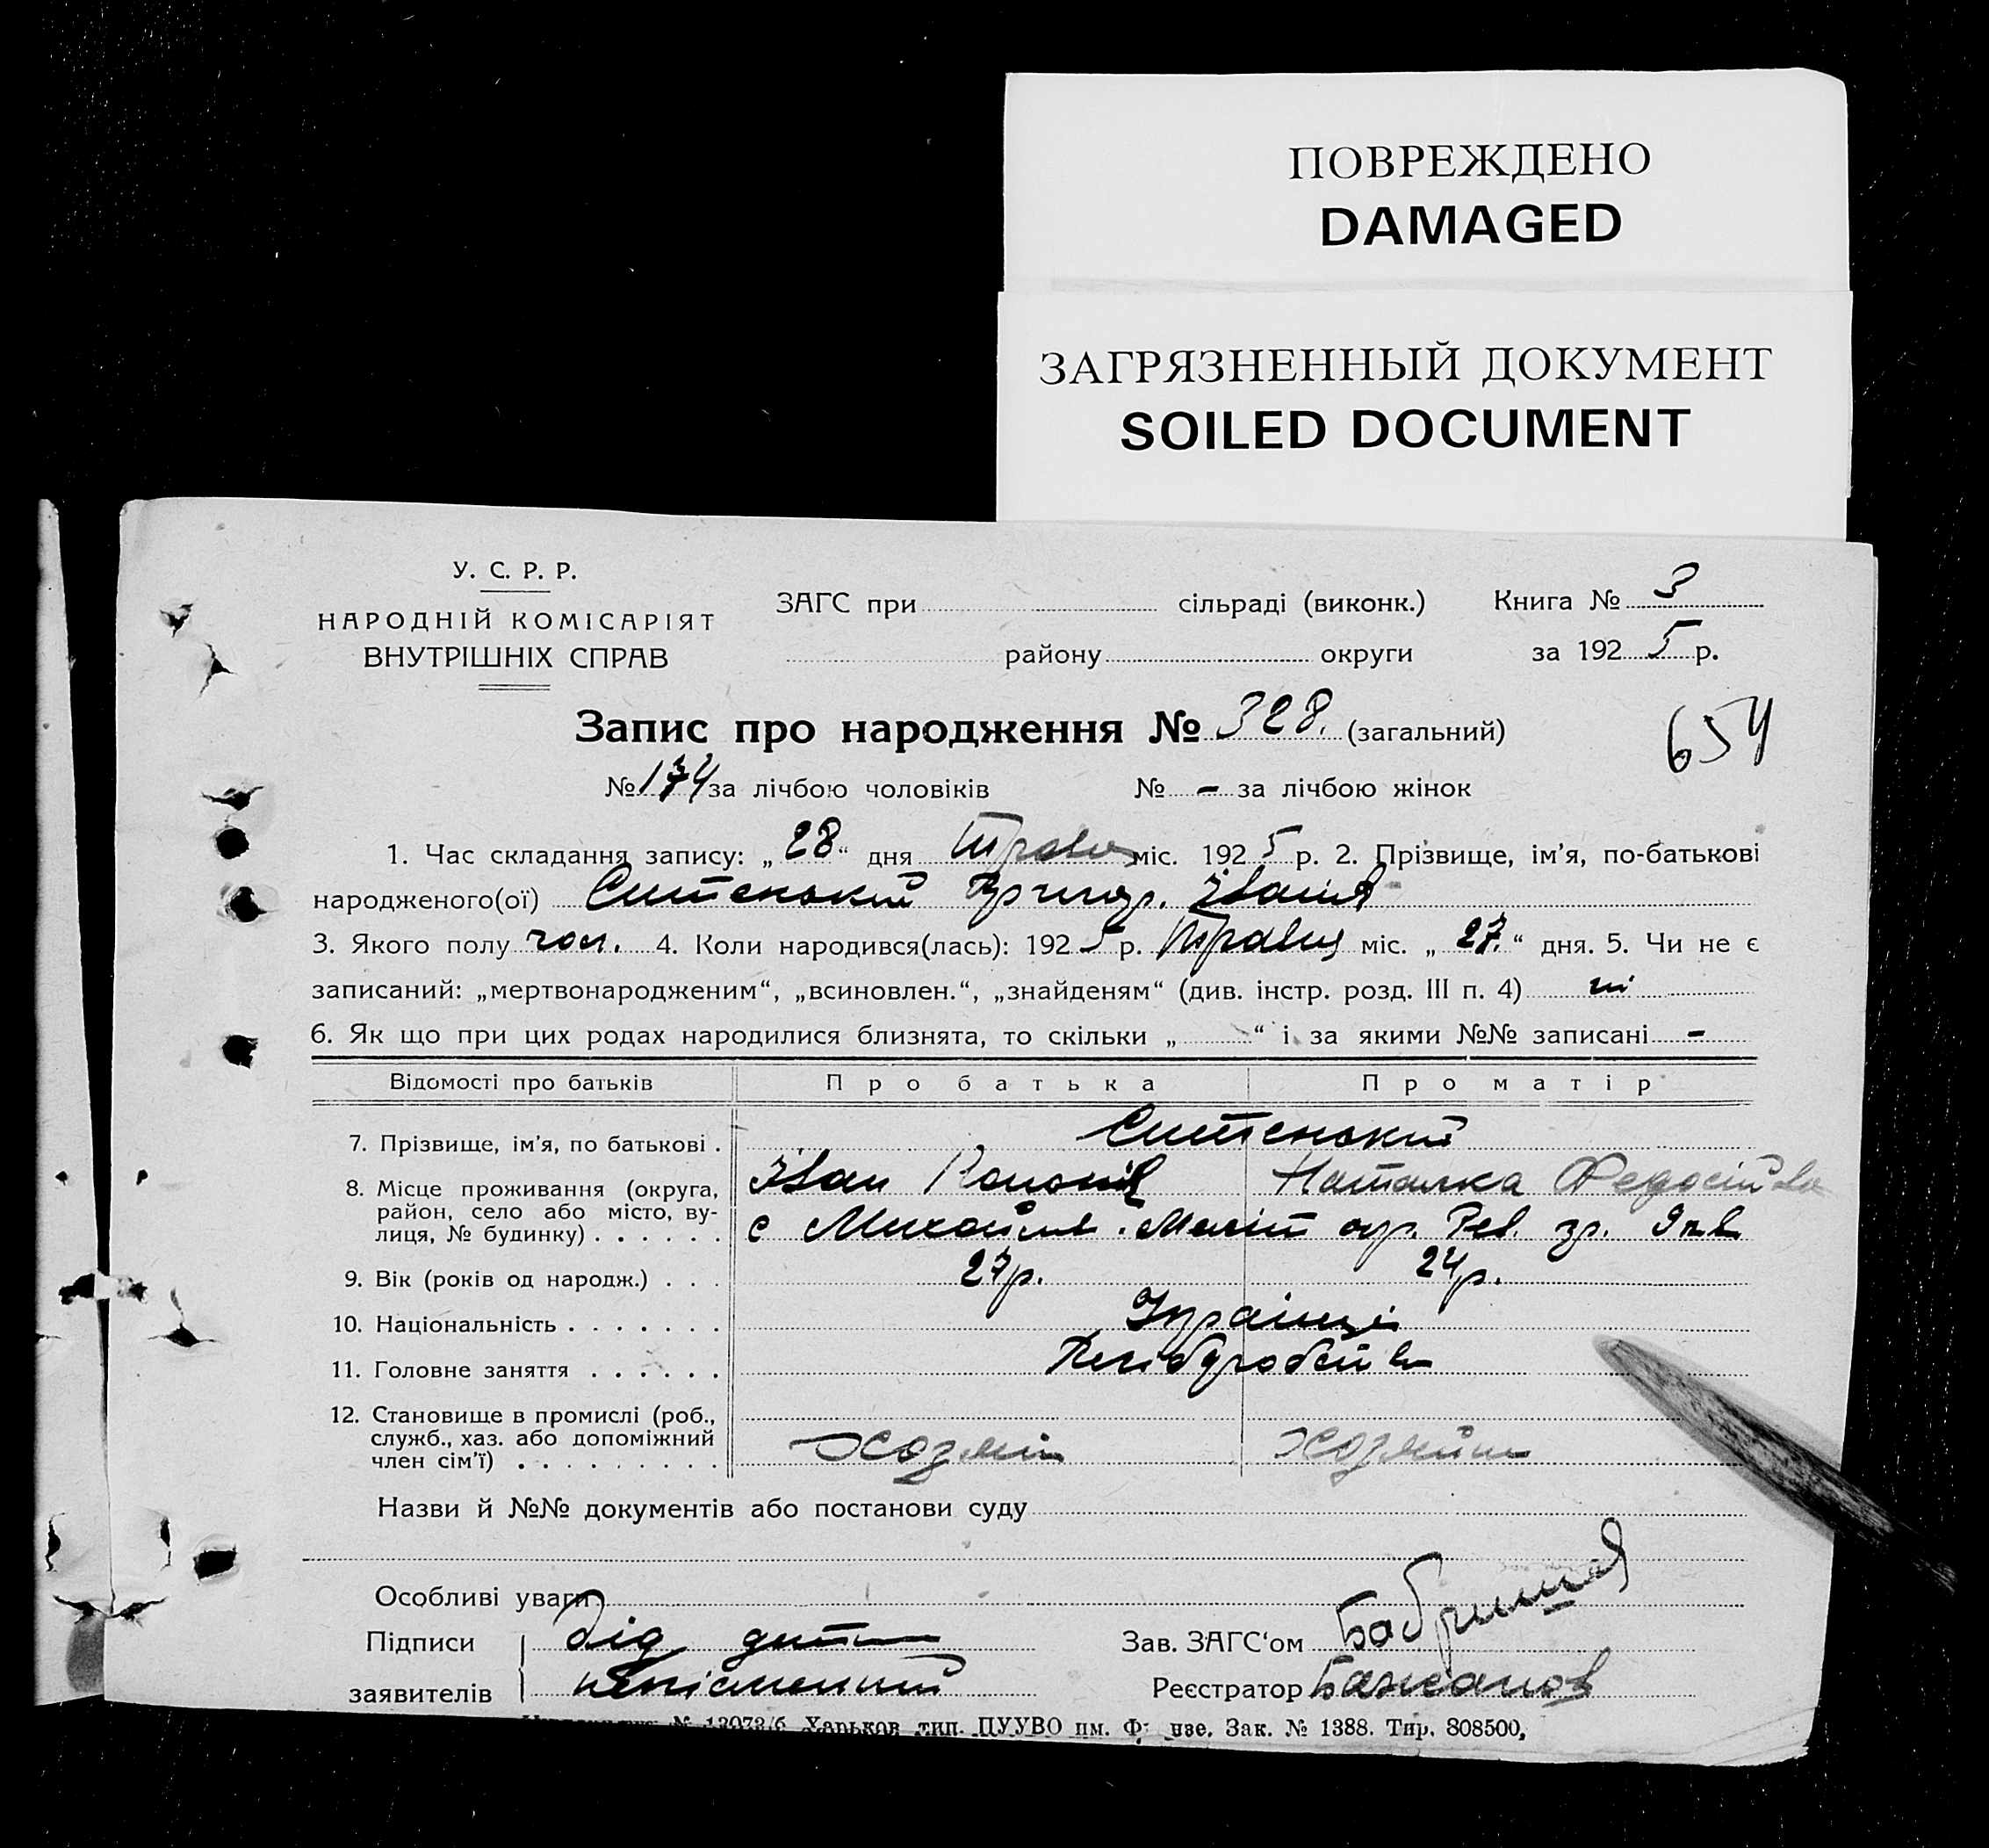 ПОВРЕЖДЕНО
DAMAGED
ЗАГРЯЗНЕННЫЙ ДОКУМЕНТ
SOILED DOCUMENT
У. С. Р. Р.
НАРОДНІЙ КОМІСАРІЯТ
ВНУТРІШНІХ СПРАВ
ЗАГС при сільраді (виконк.) Книга № 3
району округи за 1925 р.
Запис про народження № 328. (загальний)
654
№ 174 за лічбою чоловіків № - за лічбою жінок
1. Час складання запису: „28“ дня Травня міс. 1925 р. 2. Прізвище, ім'я, по-батькові
народженого(ої) Ситенький Григор. Іванів
3. Якого полу чол. 4. Коли народився(лась): 1925 р. Травня міс. „27.“ дня. 5. Чи не є
записаний: „мертвонародженим“, „всиновлен.“, „знайденям“ (див. інстр. розд. III п. 4) ні
6. Як що при цих родах народилися близнята, то скільки „ “ і за якими №№ записані -
Відомості про батьків Про батька Про матір
7. Прізвище, ім'я, по батькові . Ситенький
Іван Наталка Федосіївна
8. Місце проживання (округа, район, село або місто, вулиця, № будинку) . . . . . . с
9. Вік (років од народж.) . . . 27р. 24р.
10. Національність . . . . . . . Українці
11. Головне заняття . . . . . .
12. Становище в промислі (роб.,
служб., хаз. або допоміжний
член сім'ї) . . . . . . . . . Хозяїн
Назви й №№ документів або постанови суду
Особливі уваги
Підписи від Зав. ЗАГС‘ом
заявителів неписьменний Реєстратор Бажанов
№ 13073/б. Харьков тип. ПУУВО им. Зак. № 1388. Тир. 808500,